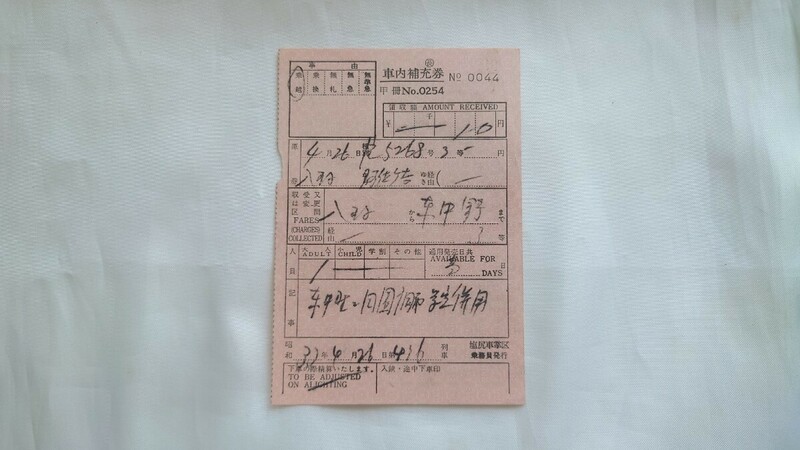 事由
乗越 乗換 無札 無急 無準急
車内補充券 No 0044
甲 冊 No.0254
領収額 AMOUNT RECEIVED
千
¥ 10 円
4月26日 5268号 3等 円
八王子 ゆき 経由(
収受又は変更区間 八王子 から 東中野 まで
FARES (CHARGES) COLLECTED 経由 3 等
人員 大人 ADULT 小児 CHILD 学割 その他 通用発売日共 AVAILABLE FOR 日 DAYS
1
記事
併用
昭和 33年4月26日第436列車 塩尻車掌区乗務員発行
下車の際精算いたします。 入鋏・途中下車印
TO BE ADJUSTED
ON ALIGHTING